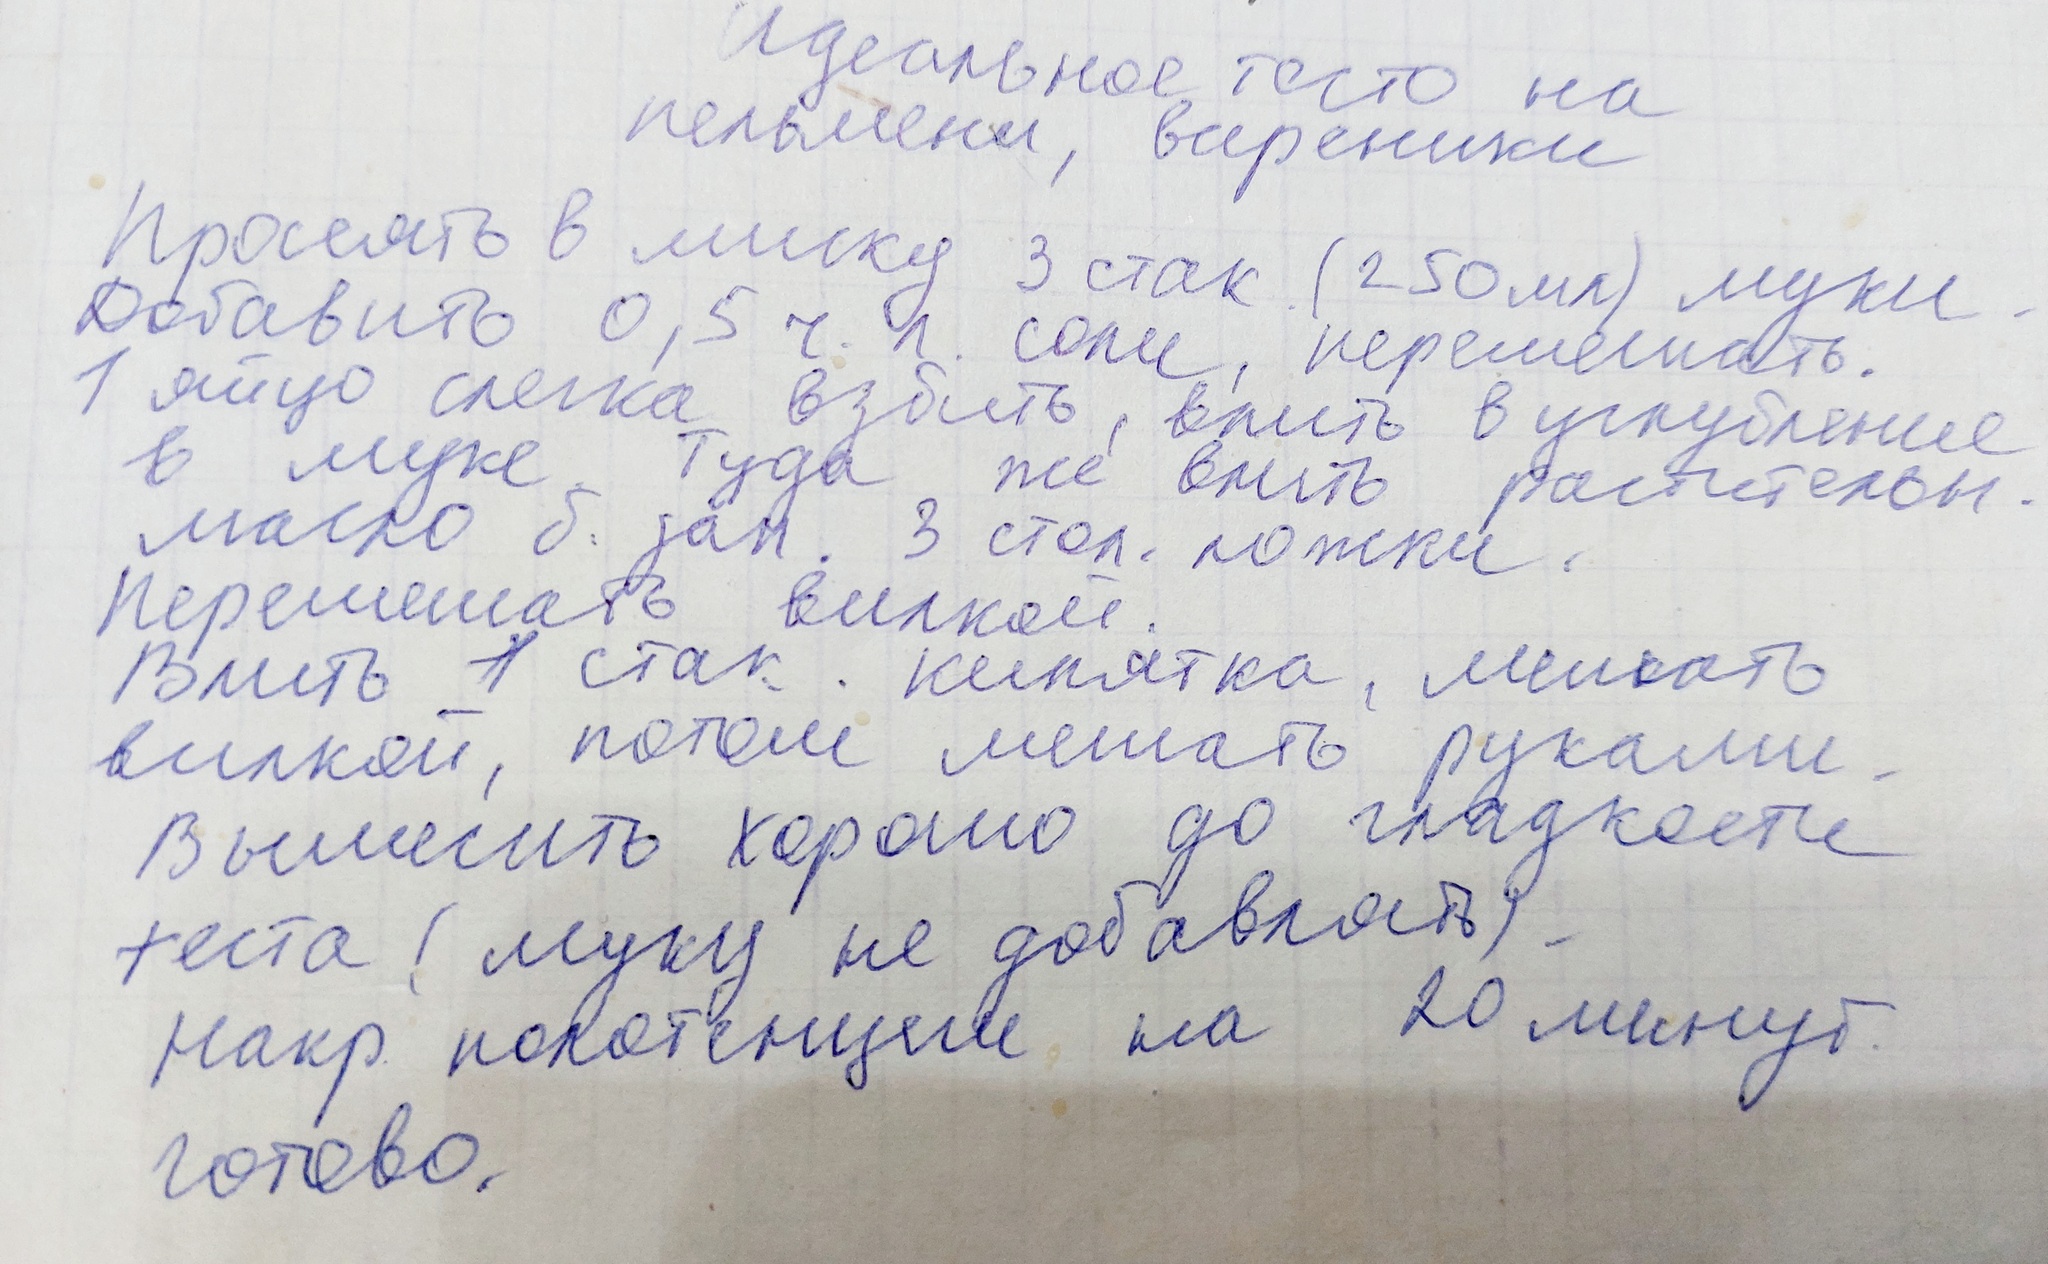 Идеальное тесто на
пельмени, вареники
Просеять в миску 3 стак. (250 мл) муки.
Добавить 0,5 ч. л. соли, перемешать.
1 яйцо слегка взбить, влить в углубление
в муке. Туда же влить растительн.
масло б. зап. 3 стол. ложки.
Перемешать вилкой.
Влить 1 стак. кипятка, мешать
вилкой, потом мешать руками.
Вымесить хорошо до гладкости
теста (муку не добавлять).
Накр. полотенцем на 20 минут.
готово.